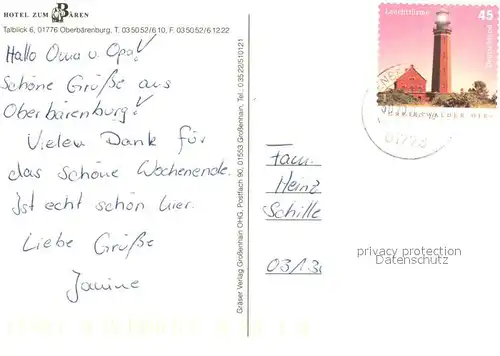 HOTEL ZUM BÄREN
Talblick 6, 01776 Oberbärenburg, T. 035052/610, F. 035052/61222
Hallo Oma u. Opa!
Schöne Grüße aus
Oberbärenburg!
Vielen Dank für
das schöne Wochenende.
Ist echt schön hier.
Liebe Grüße
Janine
Gräser Verlag Großenhain OHG, Postfach 90, 01553 Großenhain, Tel. 0 35 22/5 10121
Leuchttürme
45
Deutschland
Fam.
Heinz
Schille
privacy protection
Datenschutz